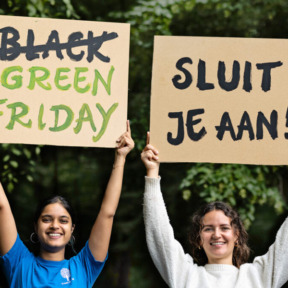 BLACK
GREEN
FRIDAY
SLUIT
JE AAN!